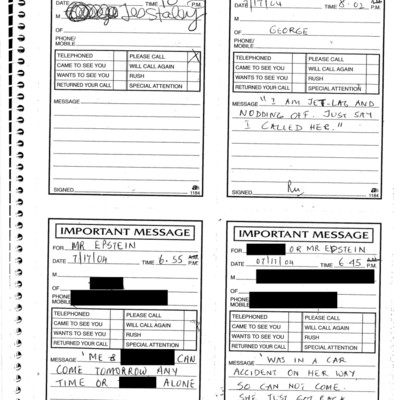 DATE TIME P.M.
M Jeostaloy
OF
PHONE/
MOBILE
TELEPHONED PLEASE CALL X
CAME TO SEE YOU WILL CALL AGAIN
WANTS TO SEE YOU RUSH
RETURNED YOUR CALL SPECIAL ATTENTION
MESSAGE
SIGNED 1184
DATE /17/04 TIME 8.02 P.M.
M GEORGE
OF
PHONE/
MOBILE
TELEPHONED PLEASE CALL
CAME TO SEE YOU WILL CALL AGAIN
WANTS TO SEE YOU RUSH
RETURNED YOUR CALL SPECIAL ATTENTION
MESSAGE "I AM JET-LAG AND
NODDING OFF. JUST SAY
I CALLED HER."
SIGNED 1184
IMPORTANT MESSAGE
FOR MR EPSTEIN
DATE 7/17/04 TIME 6.55 P.M.
M
OF
PHONE/
MOBILE
TELEPHONED PLEASE CALL
CAME TO SEE YOU WILL CALL AGAIN
WANTS TO SEE YOU RUSH
RETURNED YOUR CALL SPECIAL ATTENTION
MESSAGE 'ME & CAN
COME TOMORROW ANY
TIME OR ALONE
IMPORTANT MESSAGE
FOR OR MR EPSTEIN
DATE 07/11/04 TIME 6.45 P.M.
M
OF
PHONE/
MOBILE
TELEPHONED PLEASE CALL
CAME TO SEE YOU WILL CALL AGAIN
WANTS TO SEE YOU RUSH
RETURNED YOUR CALL SPECIAL ATTENTION
MESSAGE 'WAS IN A CAR
ACCIDENT ON HER WAY
SO CAN NOT COME.
SHE JUST GOT BACK